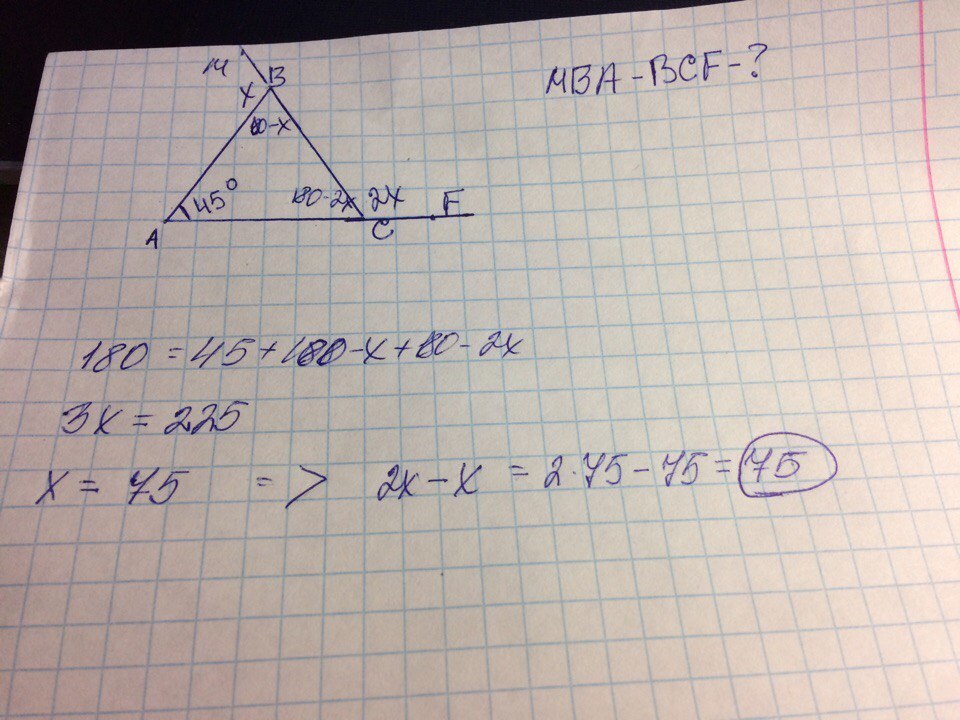 MBA - BCF - ?
M
B
x
180-x
45°
180-2x
2x
F
A
C
180 = 45 + 180 - x + 180 - 2x
3x = 225
x = 75 => 2x - x = 2·75 - 75 = 75